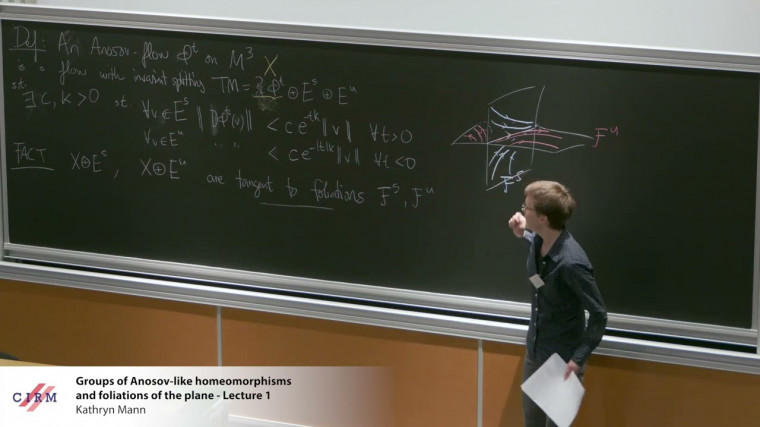 Def: An Anosov-flow Φᵗ on M³
is a flow with invariant splitting TM = ⟨Φ̇ᵗ⟩ ⊕ Eˢ ⊕ Eᵘ
X
s.t. ∃ C, k > 0 st. ∀v∈Eˢ ‖DΦᵗ(v)‖ < ce⁻ᵗᵏ‖v‖ ∀t>0
∀v∈Eᵘ " " < ce⁻ˡᵗˡᵏ‖v‖ ∀t<0
FACT X⊕Eˢ, X⊕Eᵘ are tangent to foliations Fˢ, Fᵘ
Fᵘ
Fˢ
CIRM
Groups of Anosov-like homeomorphisms
and foliations of the plane - Lecture 1
Kathryn Mann